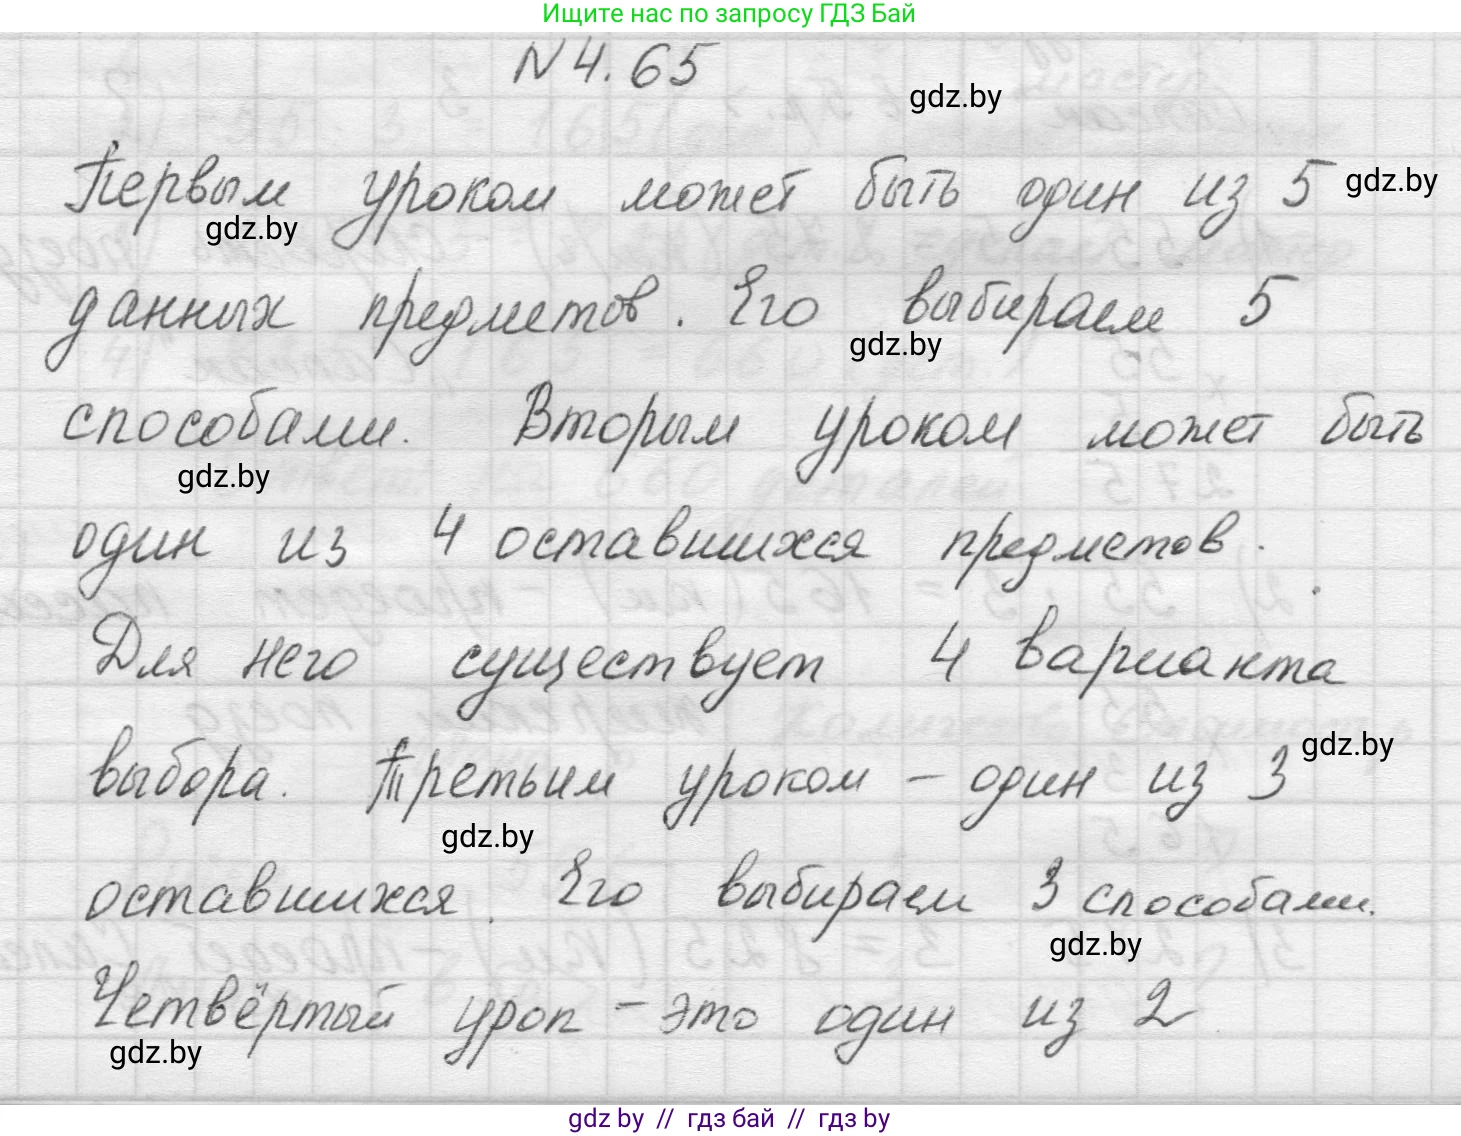 Ищите нас по запросу ГДЗ Бай
N 4.65
gdz.by
Первым уроком может быть один из 5
gdz.by
gdz.by
данных предметов. Его выбираем 5
gdz.by
способами. Вторым уроком может быть
gdz.by
один из 4 оставшихся предметов.
Для него существует 4 варианта
выбора. Третьим уроком – один из 3
gdz.by
gdz.by
оставшихся. Его выбираем 3 способами.
gdz.by
Четвёртый урок – это один из 2
gdz.by
gdz by // гдз бай // гдз by